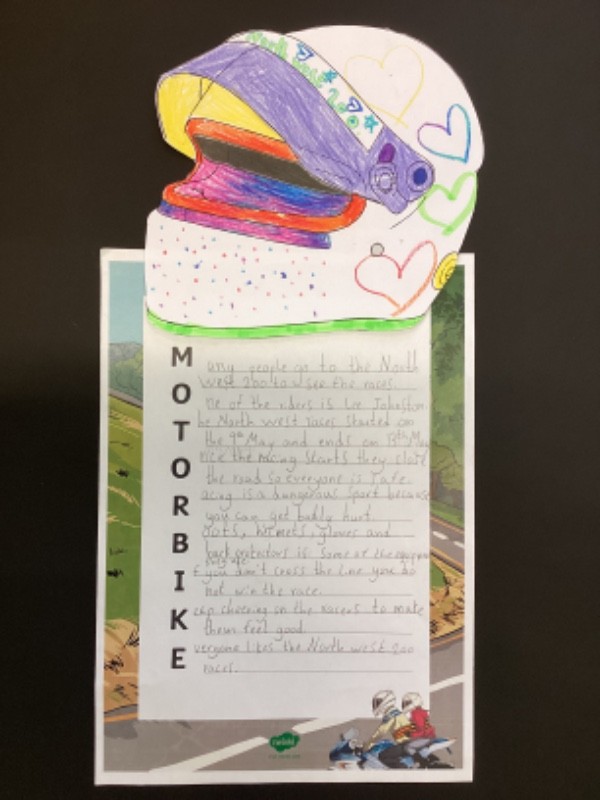 North West 200
M any people go to the North
West 200 to see the races.
O ne of the riders is Lee Johnston.
T he North West races started on
the 9th May and ends on 13th May
O nce the racing starts they close
the road so everyone is safe.
R acing is a dangerous sport because
you can get badly hurt.
B oots, helmets, gloves and
back protectors is some of the
I f you don't cross the line you do
not win the race.
K eep cheering on the racers to make
them feel good.
E veryone likes the North West 200
races.
twinkl